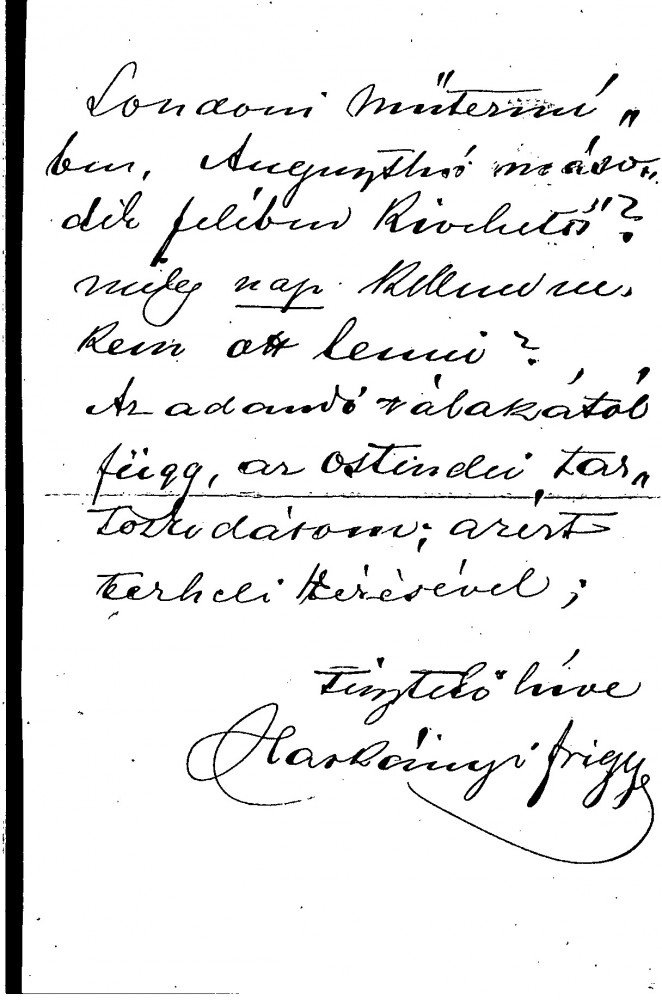 Londoni műtermé„
ben, Auguszthó máso„
dik felében kivehető"?
mily nap kellend ne„
kem ott lenni?
Az adandó válaszától
függ, az ostendei tar„
tózkodásom; azért
terheli kérésével;
Tisztelő híve
Harkányi Frigyes